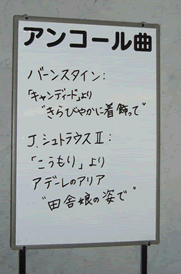 アンコール曲
バーンスタイン:
「キャンディード」より
"きらびやかに着飾って"
J.シュトラウスⅡ:
「こうもり」より
アデーレのアリア
"田舎娘の姿で"